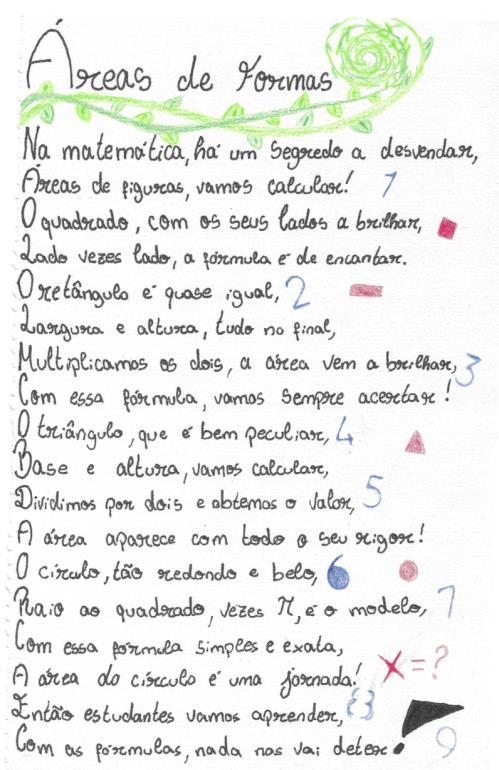 Áreas de Formas
Na matemática, há um segredo a desvendar,
Áreas de figuras, vamos calcular! 1
O quadrado, com os seus lados a brilhar,
Lado vezes lado, a fórmula é de encantar.
O retângulo é quase igual, 2
Largura e altura, tudo no final,
Multiplicamos os dois, a área vem a brilhar, 3
Com essa fórmula, vamos sempre acertar!
O triângulo, que é bem peculiar, 4
Base e altura, vamos calcular,
Dividimos por dois e obtemos o valor, 5
A área aparece com todo o seu rigor!
O círculo, tão redondo e belo, 6
Raio ao quadrado, vezes π, é o modelo, 7
Com essa fórmula simples e exata,
A área do círculo é uma jornada! x=?
Então estudantes vamos aprender, 8
Com as fórmulas, nada nos vai deter! 9